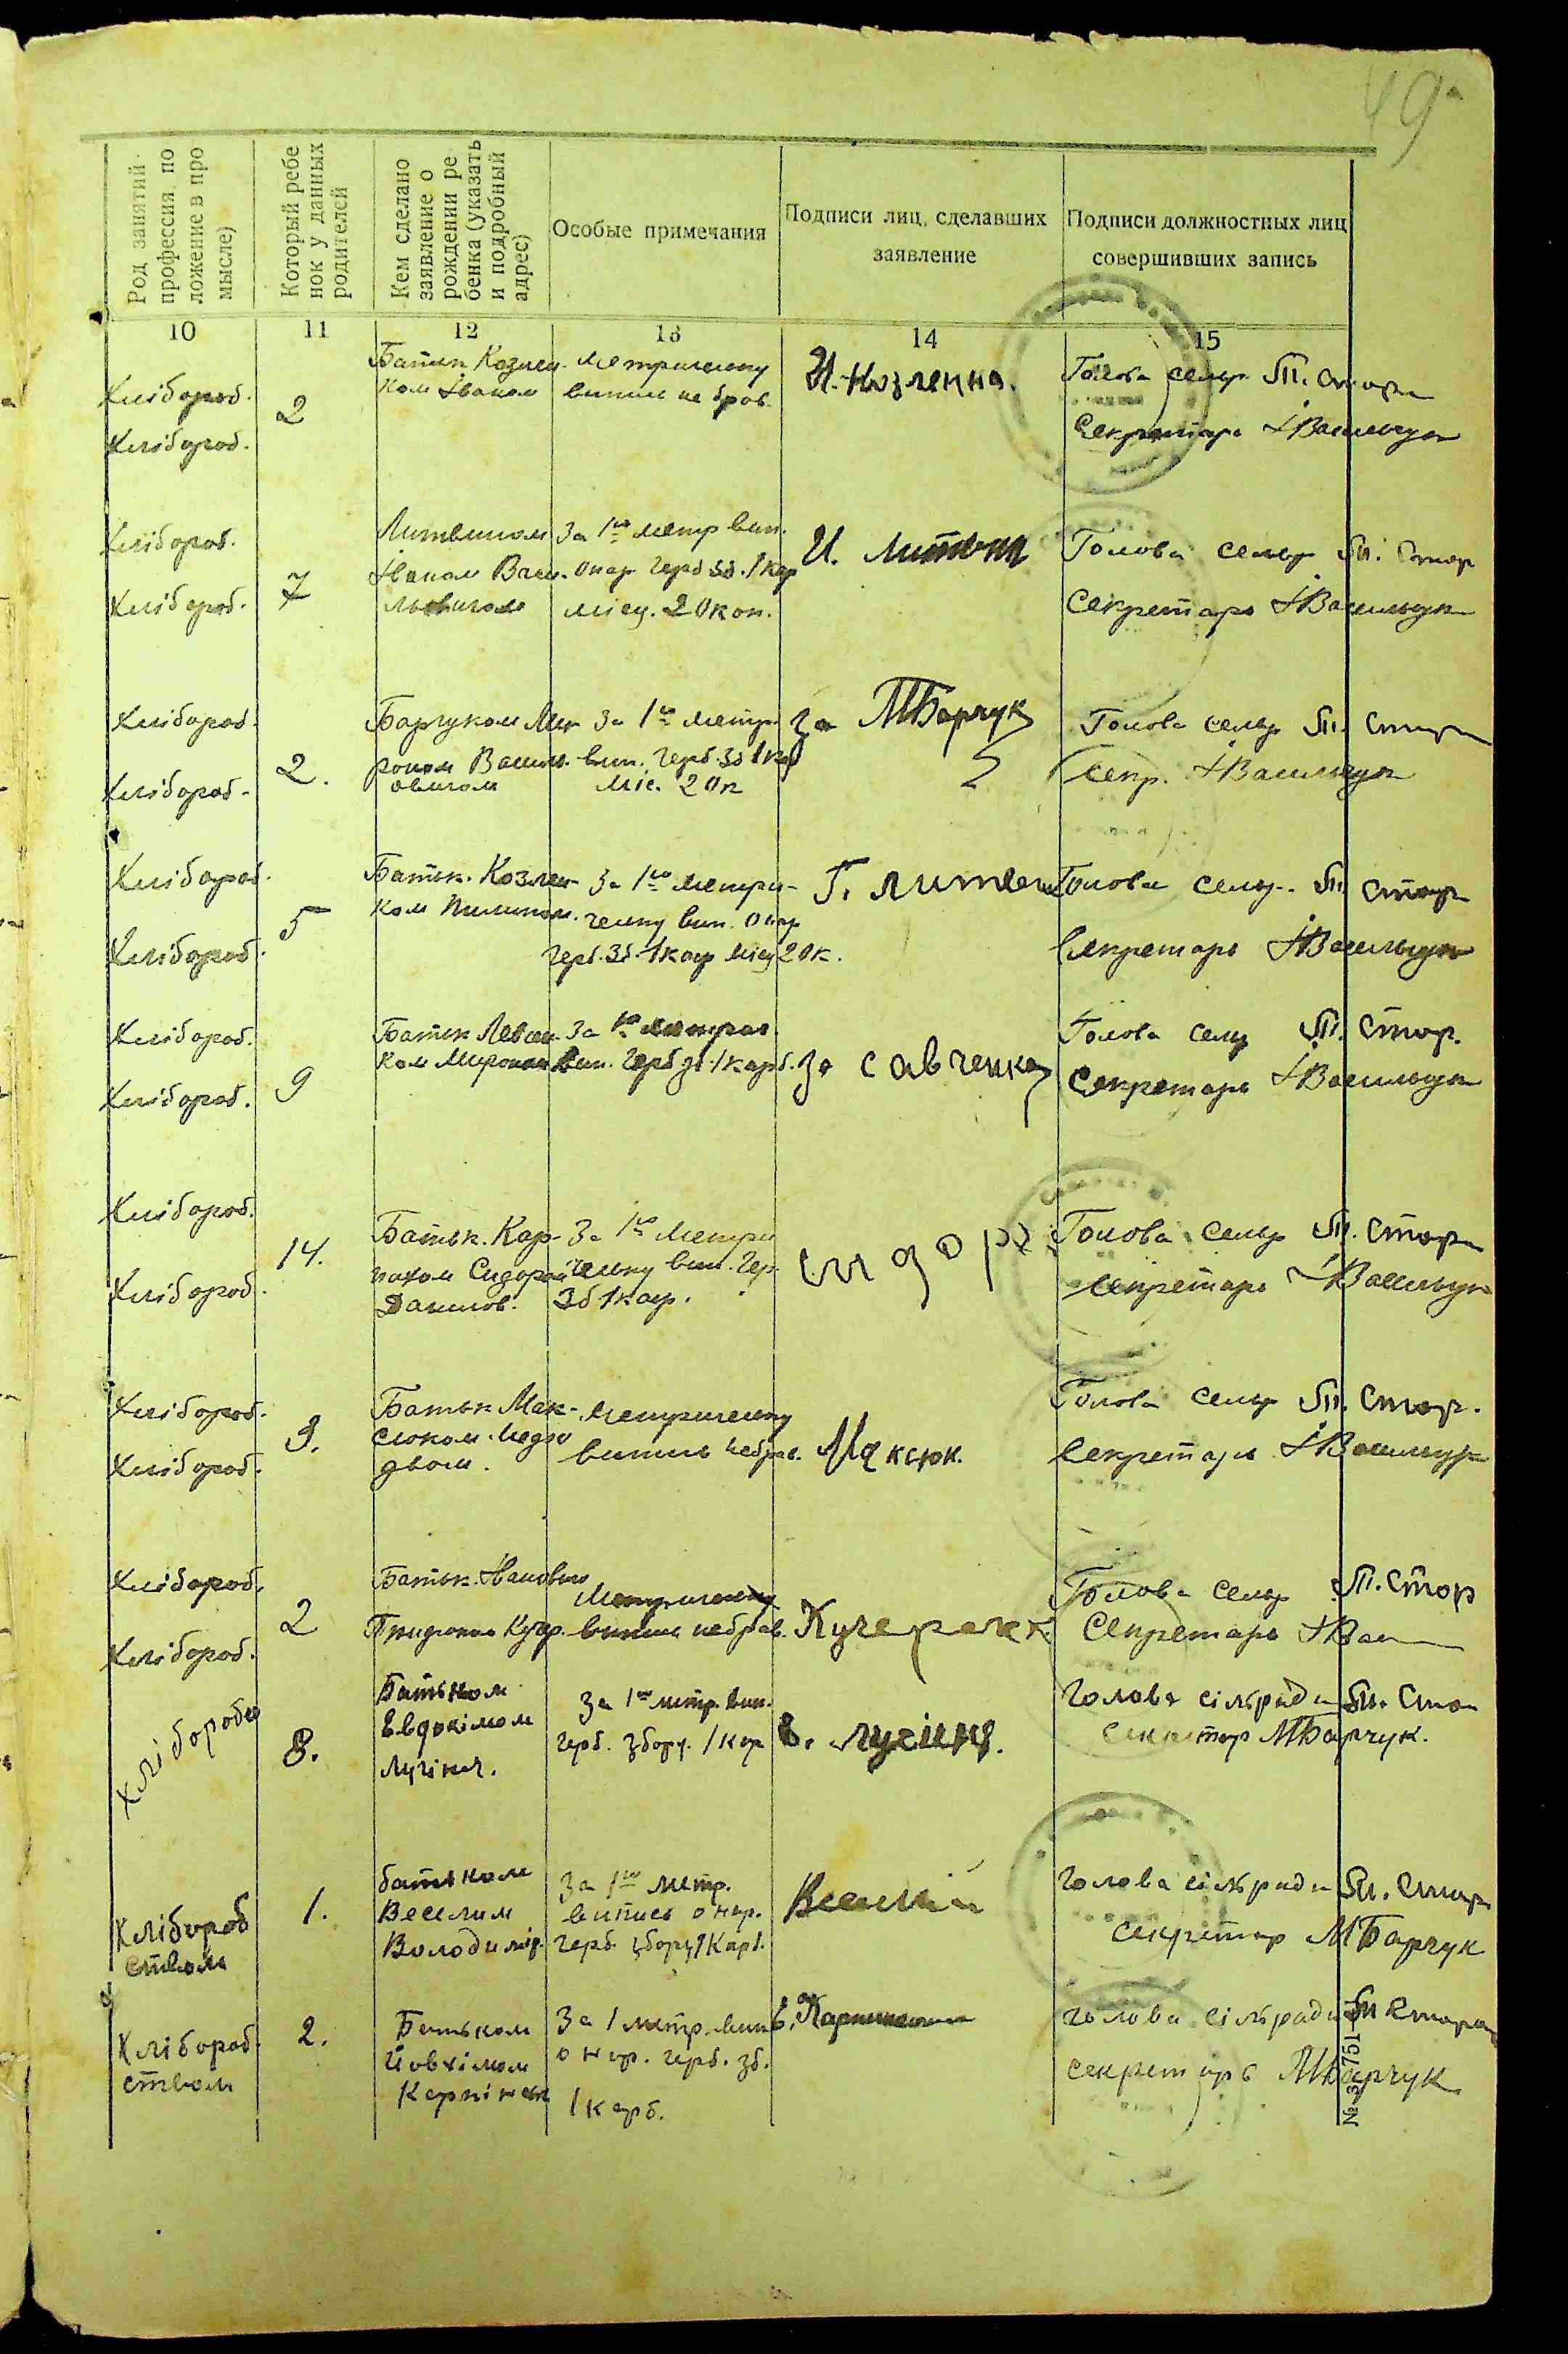 49
Род занятий профессия по
ложение в про
мысле)
Который ребе
нок у данных
родителей
Кем сделано
заявление о
рождении ре
бенка (указать
и подробный
адрес)
Особые примечания
Подписи лиц, сделавших
заявление
Подписи должностных лиц
совершивших запись
10 11 12 13 14 15
Хлібороб.
Хлібороб.
2
Батьк Козлен-
ком Іваном
Метричному
випись не брав.
И. Козленко.
Голова сельр. П. Стор
Секретарь І Васильчук
Хлібороб.
Хлібороб.
7
Литвином
Іваном Васи-
льовичом
За 1шу метр вип.
о нар герб зб. 1 кар
місц. 20 коп.
И. Литвин
Голова сельр П. Стор
Секретарь І Васильчук
Хлібороб.
Хлібороб.
2.
Барчуком Ми-
роном Васил-
овичом
За 1шу метр.
вип. герб. зб 1 кар
міс. 20 к
за МБарчук
Голова сельр П. Стор
Секр. І Васильчук
Хлібороб.
Хлібороб.
5
Батьк. Козлен-
ком Пилипом.
За 1шу метри-
чему вип. о нар
герб. зб. 1 кар місц 20 к.
Г. Литвин
Голова сельр. П. Стор
Секретарь І Васильчук
Хлібороб.
Хлібороб.
9
Батьк Левчен-
ком Мироном
За 1шу метрич.
вип. герб зб. 1 карб.
за Савченко
Голова сельр П. Стор.
Секретарь І Васильчук
Хлібороб.
Хлібороб.
14.
Батьк. Кар-
паком Сидором
Данилов.
За 1шу метри
чему вип. гер.
зб 1 кар.
сидор
Голова сельр П. Стор
Секретарь І Васильчук
Хлібороб.
Хлібороб.
3.
Батьк Мак-
сюком
Метричему
випись не брав.
Максюк.
Голова сельр П. Стор.
Секретарь І Васильчук
Хлібороб.
Хлібороб.
2
Батьк.
Кучер.
Метричему
випись не брав.
Кучерекк
Голова сельр П. Стор
Секретарь І Вас
Хлібороби
8.
Батьком
Евдокімом
Лучінец.
За 1шу метр. вип.
герб. збору. 1 кар
Голова сільради П. Сто
Секретар МБарчук.
Хлібороб
ством
1.
батьком
Веселим
Володимір.
За 1шу метр.
випись о нар.
герб. збору 1 Карб.
Веселий
Голова сільради П. Стор
секретар МБарчук
Хлібороб.
ством
2.
Батьком
Йовхімом
За 1 метр. вип
о нар. герб. зб.
1 карб.
Голова сільради П Стор
секретарь МБарчук
№ 3751